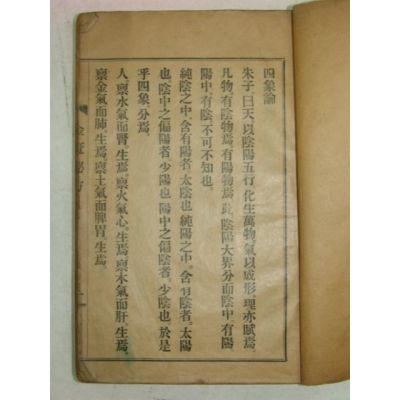 四象論
朱子、曰天、以陰陽五行、化生萬物、氣以成形、理亦賦焉、
凡物、有陰物焉、有陽物焉、此、陰陽大界分而陰中、有陽
陽中、有陰、不可不知也、
純陰之中、含有陽者、太陰也、純陽之中、含有陰者、太陽
也、陰中之偏陽者、少陽也、陽中之偏陰者、少陰也、於是
乎四象、分焉、
人、稟水氣而腎、生焉、稟火氣心、生焉、稟木氣而肝、生焉、
稟金氣而肺、生焉、稟土氣而脾胃、生焉、
金匱秘方 一